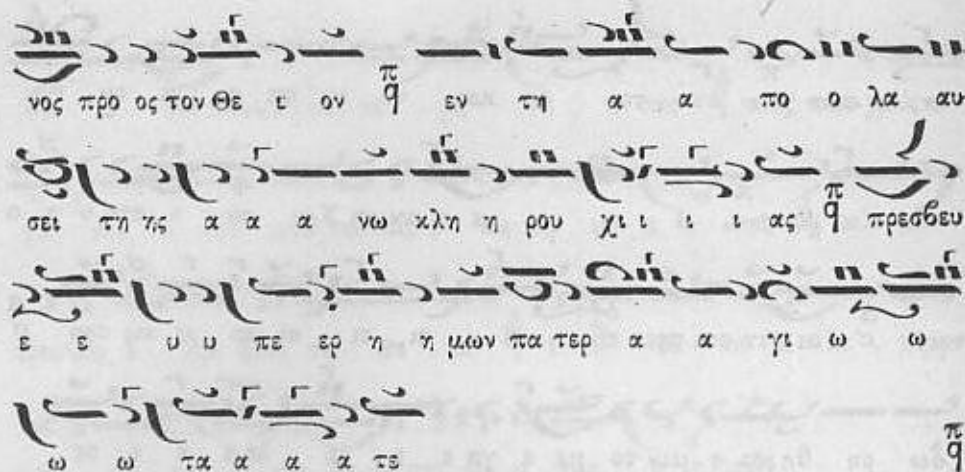 νος προ ος τον Θε ι ον π q εν τη α α πο ο λα αυ
σει τη ης α α α νω κλη η ρου χι ι ι ι ας π q πρεσβευ
ε ε υ υ πε ερ η η μων πα τερ α α γι ω ω
ω ω τα α α α τε π q